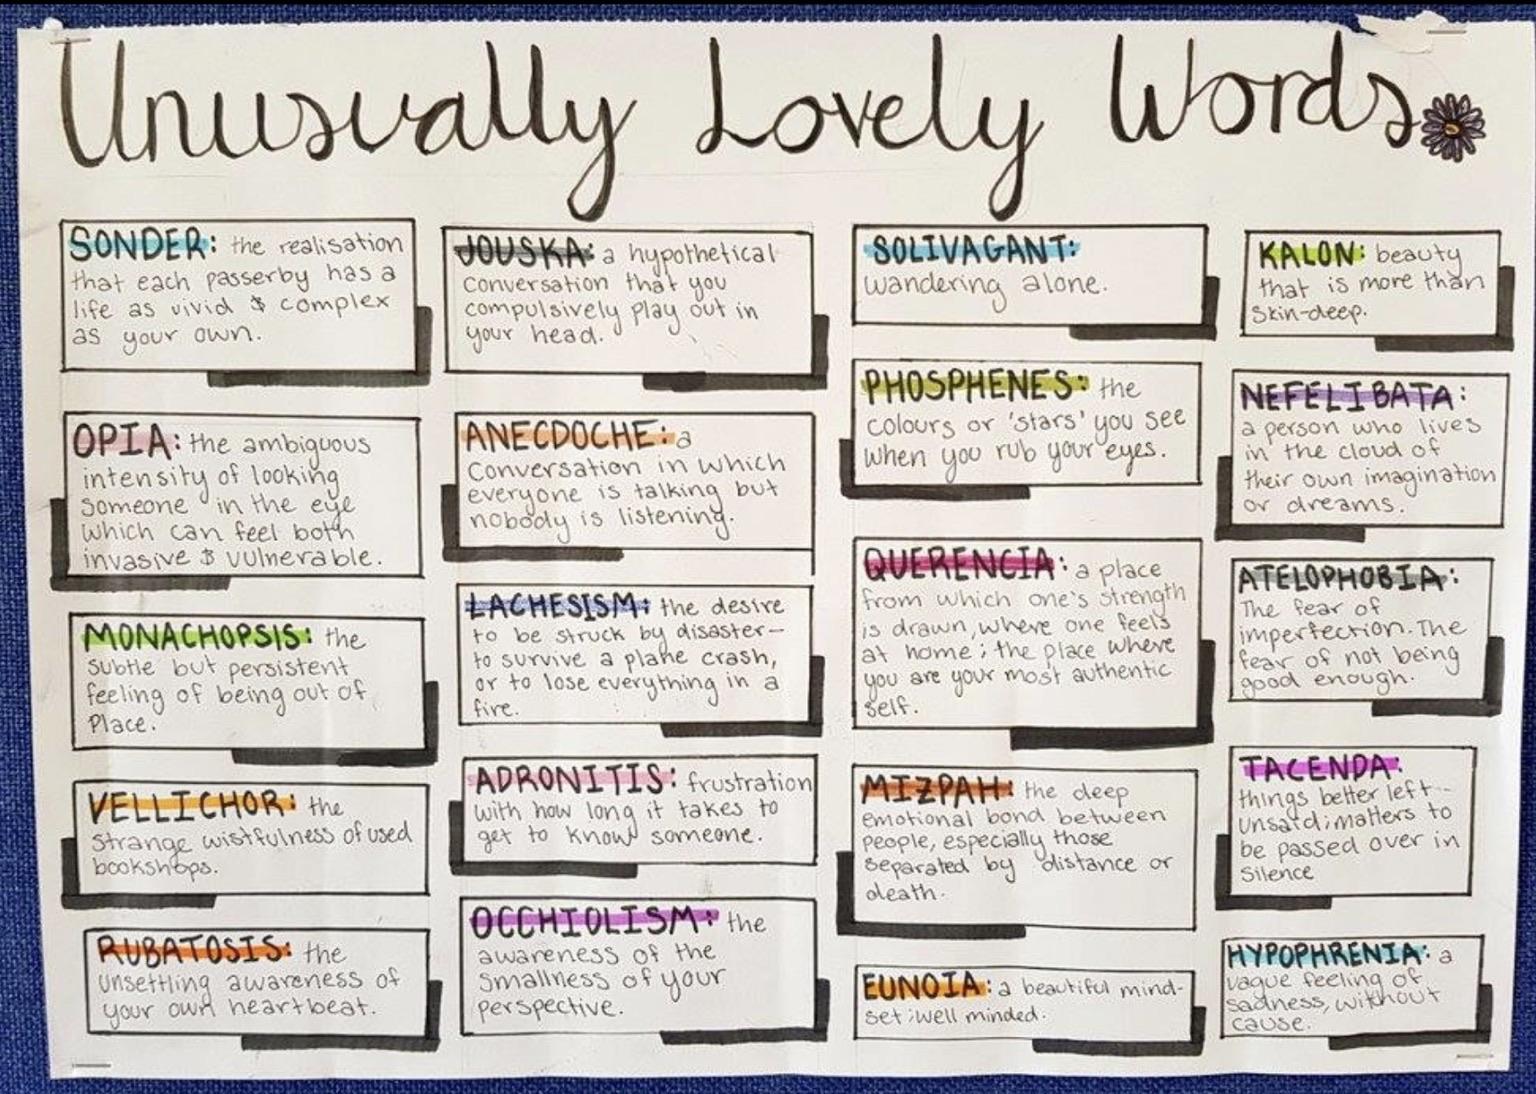 Unusually Lovely Words
SONDER: the realisation
that each passerby has a
life as vivid & complex
as your own.
OPIA: the ambiguous
intensity of looking
someone in the eye
which can feel both
invasive & vulnerable.
MONACHOPSIS: the
subtle but persistent
feeling of being out of
Place.
VELLICHOR: the
strange wistfulness of used
bookshops.
RUBATOSIS: the
unsettling awareness of
your own heartbeat.
JOUSKA: a hypothetical
conversation that you
compulsively play out in
your head.
ANECDOCHE: a
conversation in which
everyone is talking but
nobody is listening.
LACHESISM: the desire
to be struck by disaster-
to survive a plane crash,
or to lose everything in a
fire.
ADRONITIS: frustration
with how long it takes to
get to know someone.
OCCHIOLISM: the
awareness of the
smallness of your
perspective.
SOLIVAGANT:
wandering alone.
PHOSPHENES: the
colours or 'stars' you see
when you rub your eyes.
QUERENCIA: a place
from which one's strength
is drawn, where one feels
at home; the place where
you are your most authentic
self.
MIZPAH: the deep
emotional bond between
people, especially those
separated by distance or
death.
EUNOIA: a beautiful mind-
set; well minded.
KALON: beauty
that is more than
skin-deep.
NEFELIBATA:
a person who lives
in the cloud of
their own imagination
or dreams.
ATELOPHOBIA:
The fear of
imperfection. The
fear of not being
good enough.
TACENDA:
things better left--
unsaid; matters to
be passed over in
silence
HYPOPHRENIA: a
vague feeling of
sadness, without
cause.